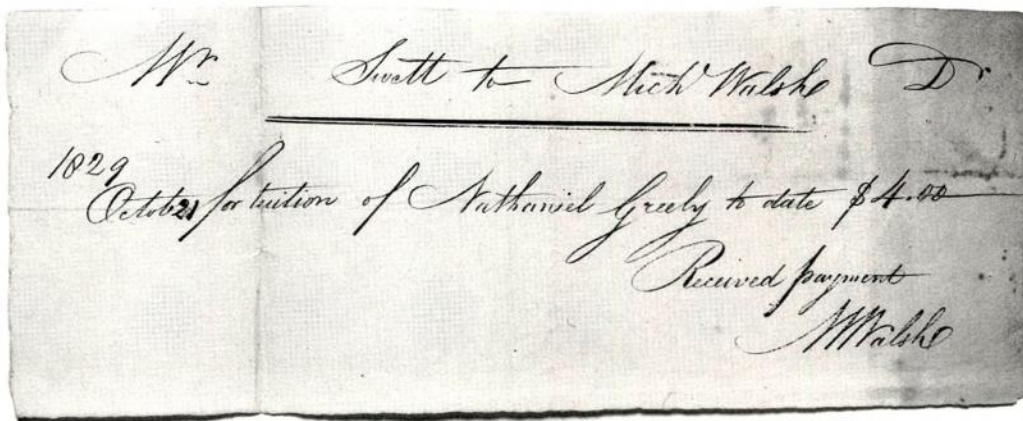 Mr Swett to Mich Walsh Dr
1829
Octob 21 for tuition of Nathaniel Greely to date $4.00
Received payment
M Walsh